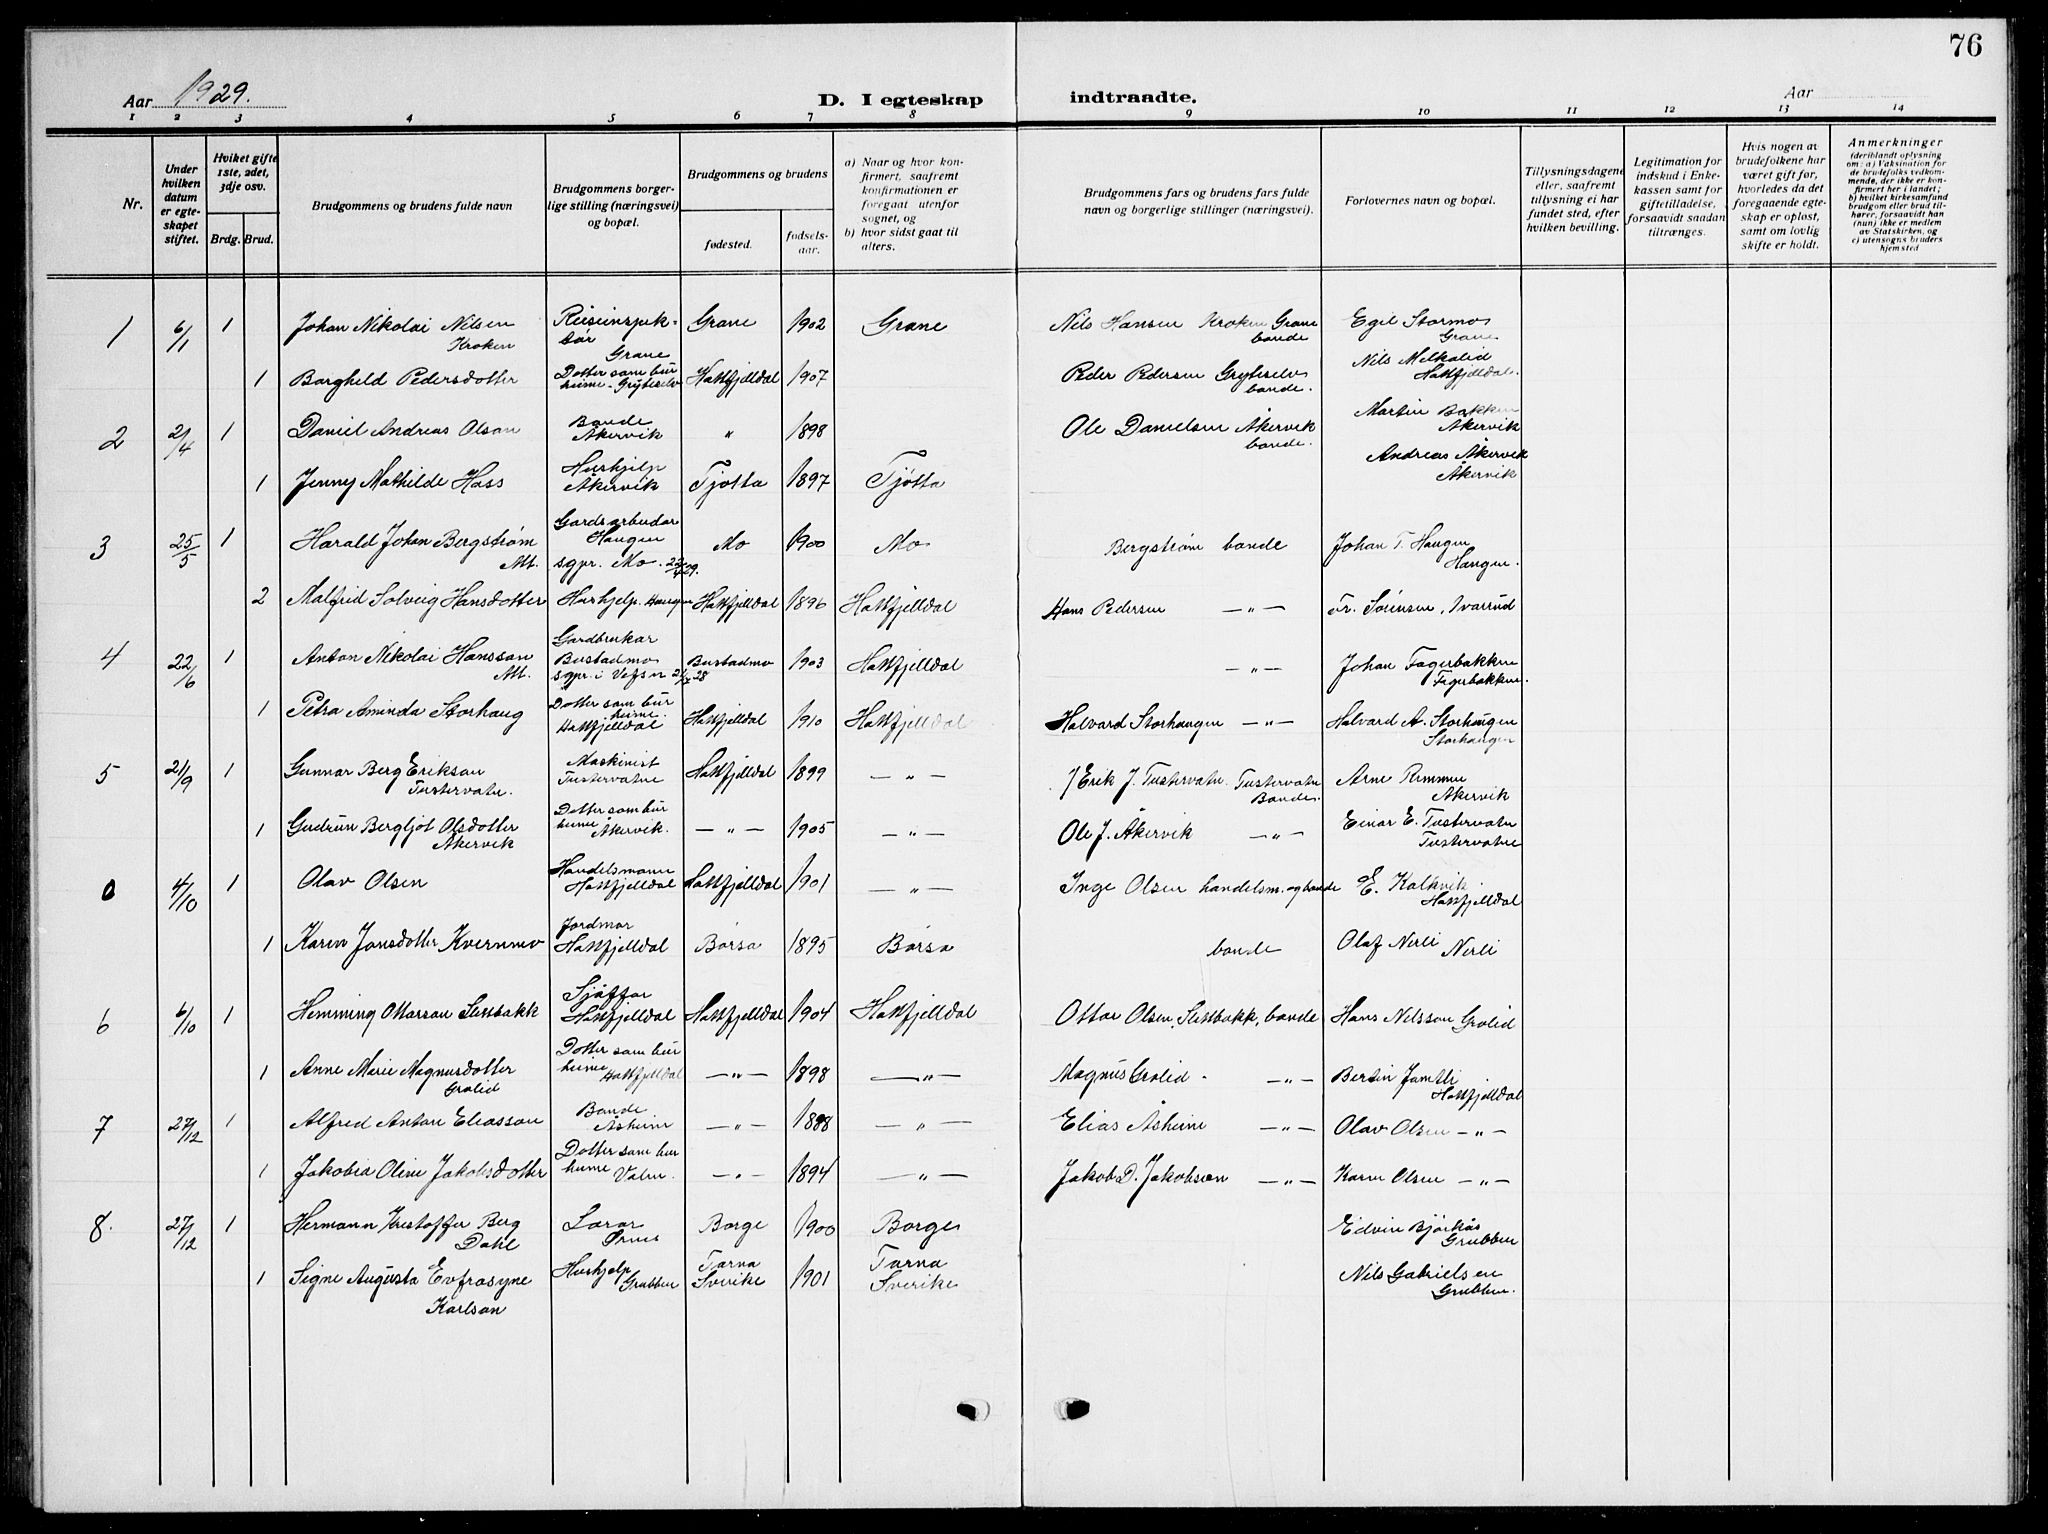 76
Aar 1929.
D. I egteskap indtraadte.
Aar
1 2 3 4 5 6 7 8 9 10 11 12 13 14
Nr.
Under hvilken datum er egteskapet stiftet.
Hviket gifte 1ste, 2det, 3dje osv.
Brdg. Brud.
Brudgommens og brudens fulde navn
Brudgommens borgerlige stilling (næringsvei) og bopæl.
Brudgommens og brudens
fødested.
fødselsaar.
a) Naar og hvor konfirmert, saafremt konfirmationen er foregaat utenfor sognet, og
b) hvor sidst gaat til alters.
Brudgommens fars og brudens fars fulde navn og borgerlige stillinger (næringsvei).
Forlovernes navn og bopæl.
Tillysningsdagene eller, saafremt tillysning ei har fundet sted, efter hvilken bevilling.
Legitimation for indskud i Enkekassen samt for giftetilladelse, forsaavidt saadan tiltrænges.
Hvis nogen av brudefolkene har været gift før, hvorledes da det foregaaende egteskap er opløst, samt om lovlig skifte er holdt.
Anmerkninger (deriblandt oplysning om: a) Vaksination for de brudefolks vedkommende, der ikke er konfirmert her i landet; b) hvilket kirkesamfund brudgom eller brud tilhører, forsaavidt han (hun) ikke er medlem av Statskirken, og c) utensogns bruders hjemsted
1 6/1 1 Johan Nikolai Nilsen Kroken Reiseinspektør Grane Grane 1902 Grane Nils Hansen Kroken Grane bonde Egil Stormo Grane
1 Borghild Pedersdotter Dotter som bur heime - Gryteselv Hattfjelldal 1907 Peder Pedersen Gryteselv bonde. Nils Melkolid Hattfjelldal.
2 21/4 1 Daniel Andreas Olson Bonde Åkervik " 1898 Ole Danielsen Åkervik bonde. Martin Bakken Åkervik
1 Jenny Mathilde Hass Hushjelp Åkervik Tjøtta 1897 Tjøtta Andreas Åkervik Åkervik
3 25/5 1 Harald Johan Bergstrøm Att. Gardsarbeidar Haugen sgpr. Mo. 22/4 29. Mo 1900 Mo Bergstrøm bonde Johan T. Haugen Haugen.
2 Malfrid Solveig Hansdotter Hushjelp. Haugen Hattfjelldal 1896 Hattfjelldal Hans Pedersen — " — Fr. Sørensen, Ivarrud
4 22/6 1 Anton Nikolai Hansson Att. Gardbrukar Bustadmo sgpr. i Vefsn 21/7 28 Bustadmo 1903 Hattfjelldal — " — Johan Fagerbakken Fagerbakken.
1 Petra Aminda Storhaug Dotter som bur heime. Hattfjelldal Hattfjelldal 1910 Hattfjelldal Halvard Storhaugen — " — Halvard A. Storhaugen Storhaugen
5 21/9 1 Gunnar Berg Eriksen Tustervatn. Maskinist Tustervatne Hattfjelldal 1899 — " — Erik J. Tustervatn. Tustervatn Bonde. Arne Remmen Åkervik
1 Gudrun Bergljot Olsdotter Åkervik Dotter som bur heime Åkervik. — " — 1905 — " — Ole J. Åkervik — " — Einar E. Tustervatn Tustervatne
0 4/10 1 Olav Olsen Handelsmann Hattfjelldal Hattfjelldal 1901 — " — Inge Olsen handelsm. og bonde E. Kalkvik Hattfjelldal
1 Karen Jonsdotter Kvernmo Jordmor Hattfjelldal Børsa 1895 Børsa bonde Olaf Nerli Nerli
6 6/10 1 Hemming Ottarson Slettbakk Sjåffør Hattfjelldal Hattfjelldal 1904 Hattfjelldal Ottar Olsen, Slettbakk, bonde Hans Nilsson Grølid
1 Anne Marie Magnusdotter Grolid Dotter som bur heime Hattfjelldal — " — 1898 — " — Magnus Grølid — " — Bertin Jamtli Hattfjelldal
7 27/12 1 Alfred Anton Eliasson Bonde Åsheim — " — 1888 — " — Elias Åsheim — " — Olav Olsen — " —
1 Jakobia Oline Jakobsdotter Dotter som bur heime Valen. — " — 1894 — " — Jakob D. Jakobsen — " — Karen Olsen — " —
8. 27/12 1 Hermann Kristoffer Berg Dahl Lærar Ørnes Borge 1900 Borge Edvin Bjørkås Grubben
1 Signe Augusta Evfrosyne Karlson Hushjelp Grubben Tärna Sverike 1901 Tarna Sverike Nils Gabrielsen Grubben.